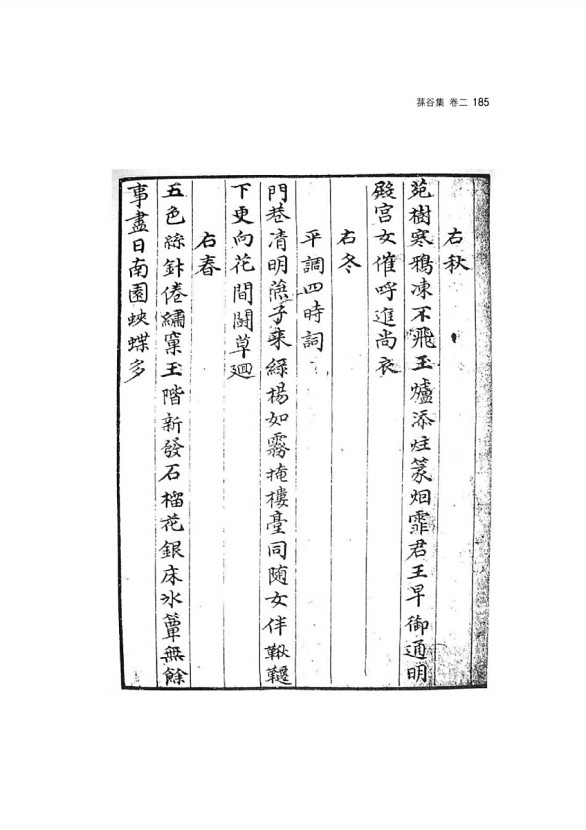 蓀谷集 卷二 185
右秋
苑樹寒鴉凍不飛玉爐添炷篆烟霏君王早御通明
殿宮女催呼進尚衣
右冬
平調四時詞
門巷清明燕子來綠楊如霧掩樓臺同随女伴鞦韆
下更向花間鬪草廻
右春
五色絲針倦繡窠玉階新發石榴花銀床氷簟無餘
事盡日南園蛺蝶多